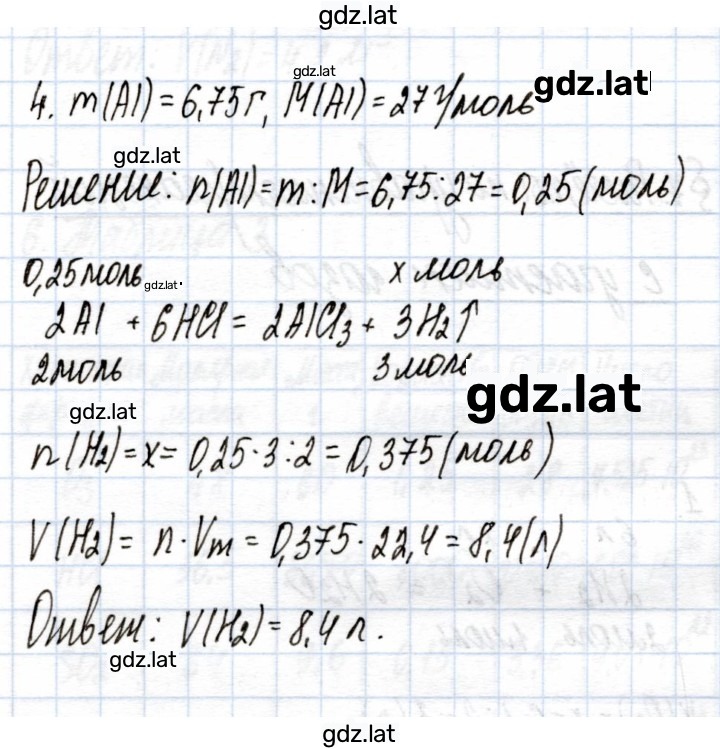 gdz.lat
gdz.lat
gdz.lat
4. m(Al) = 6,75г, M(Al) = 27 г/моль
gdz.lat
Решение: n(Al) = m : M = 6,75 : 27 = 0,25 (моль)
0,25 моль gdz.lat. x моль
2Al + 6HCl = 2AlCl₃ + 3H₂↑
2 моль 3 моль
gdz.lat
gdz.lat
n(H₂) = x = 0,25 · 3 : 2 = 0,375 (моль)
V(H₂) = n · Vm = 0,375 · 22,4 = 8,4 (л)
Ответ: V(H₂) = 8,4 л.
gdz.lat
gdz.lat